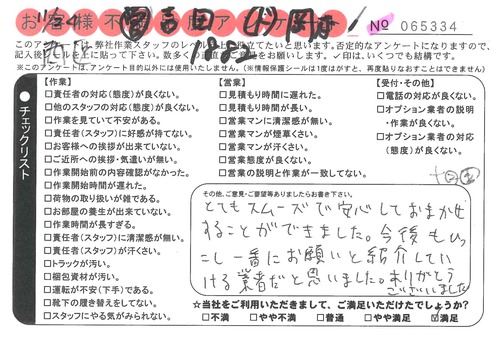 お客様不満度アンケート
11/24 ㊂吉田 (ド)岡村
1852
No 065334
このアンケートは、弊社作業スタッフのレベル
記入後、シールを上に貼って下さい。数多く
ご意見をお願いします。✓印は、いくつでも結構です。
※このアンケートは、アンケート目的以外には使用いたしません。(※情報保護シールは1度がはすと、再度貼りなおすことはできません)
チェックリスト
【作業】
□責任者の対応(態度)が良くない。
□他のスタッフの対応(態度)が良くない。
□作業を見ていて不安がある。
□責任者(スタッフ)に好感が持てない。
□お客様への挨拶が出来ていない。
□ご近所への挨拶・気遣いが無い。
□作業開始前の内容確認がなかった。
□作業開始時間が遅れた。
□荷物の取り扱いが雑である。
□お部屋の養生が出来ていない。
□作業時間が長すぎる。
□責任者(スタッフ)に清潔感が無い。
□責任者(スタッフ)が汗くさい。
□トラックが汚い。
□梱包資材が汚い。
□運転が不安(下手)である。
□靴下の履き替えをしてない。
□スタッフにやる気がみられない。
【営業】
□見積もり時間に遅れた。
□見積もり時間が長い。
□営業マンに清潔感が無い。
□営業マンが煙草くさい。
□営業マンが汗くさい。
□営業態度が良くない。
□営業の説明と作業が一致してない。
【受付・その他】
□電話の対応が良くない。
□オプション業者の説明
・作業が良くない。
□オプション業者の対応
(態度)が良くない。
その他、ご意見・ご要望等ありましたらお書き下さい。
とてもスムーズで安心しておまかせ
することができました。今後もひっ
こし一番にお願いと紹介してい
ける業者だと思いました。ありがとう
ございました
☆当社をご利用いただきまして、ご満足いただけたでしょうか?
□不満 □やや不満 □普通 □やや満足 ☑満足